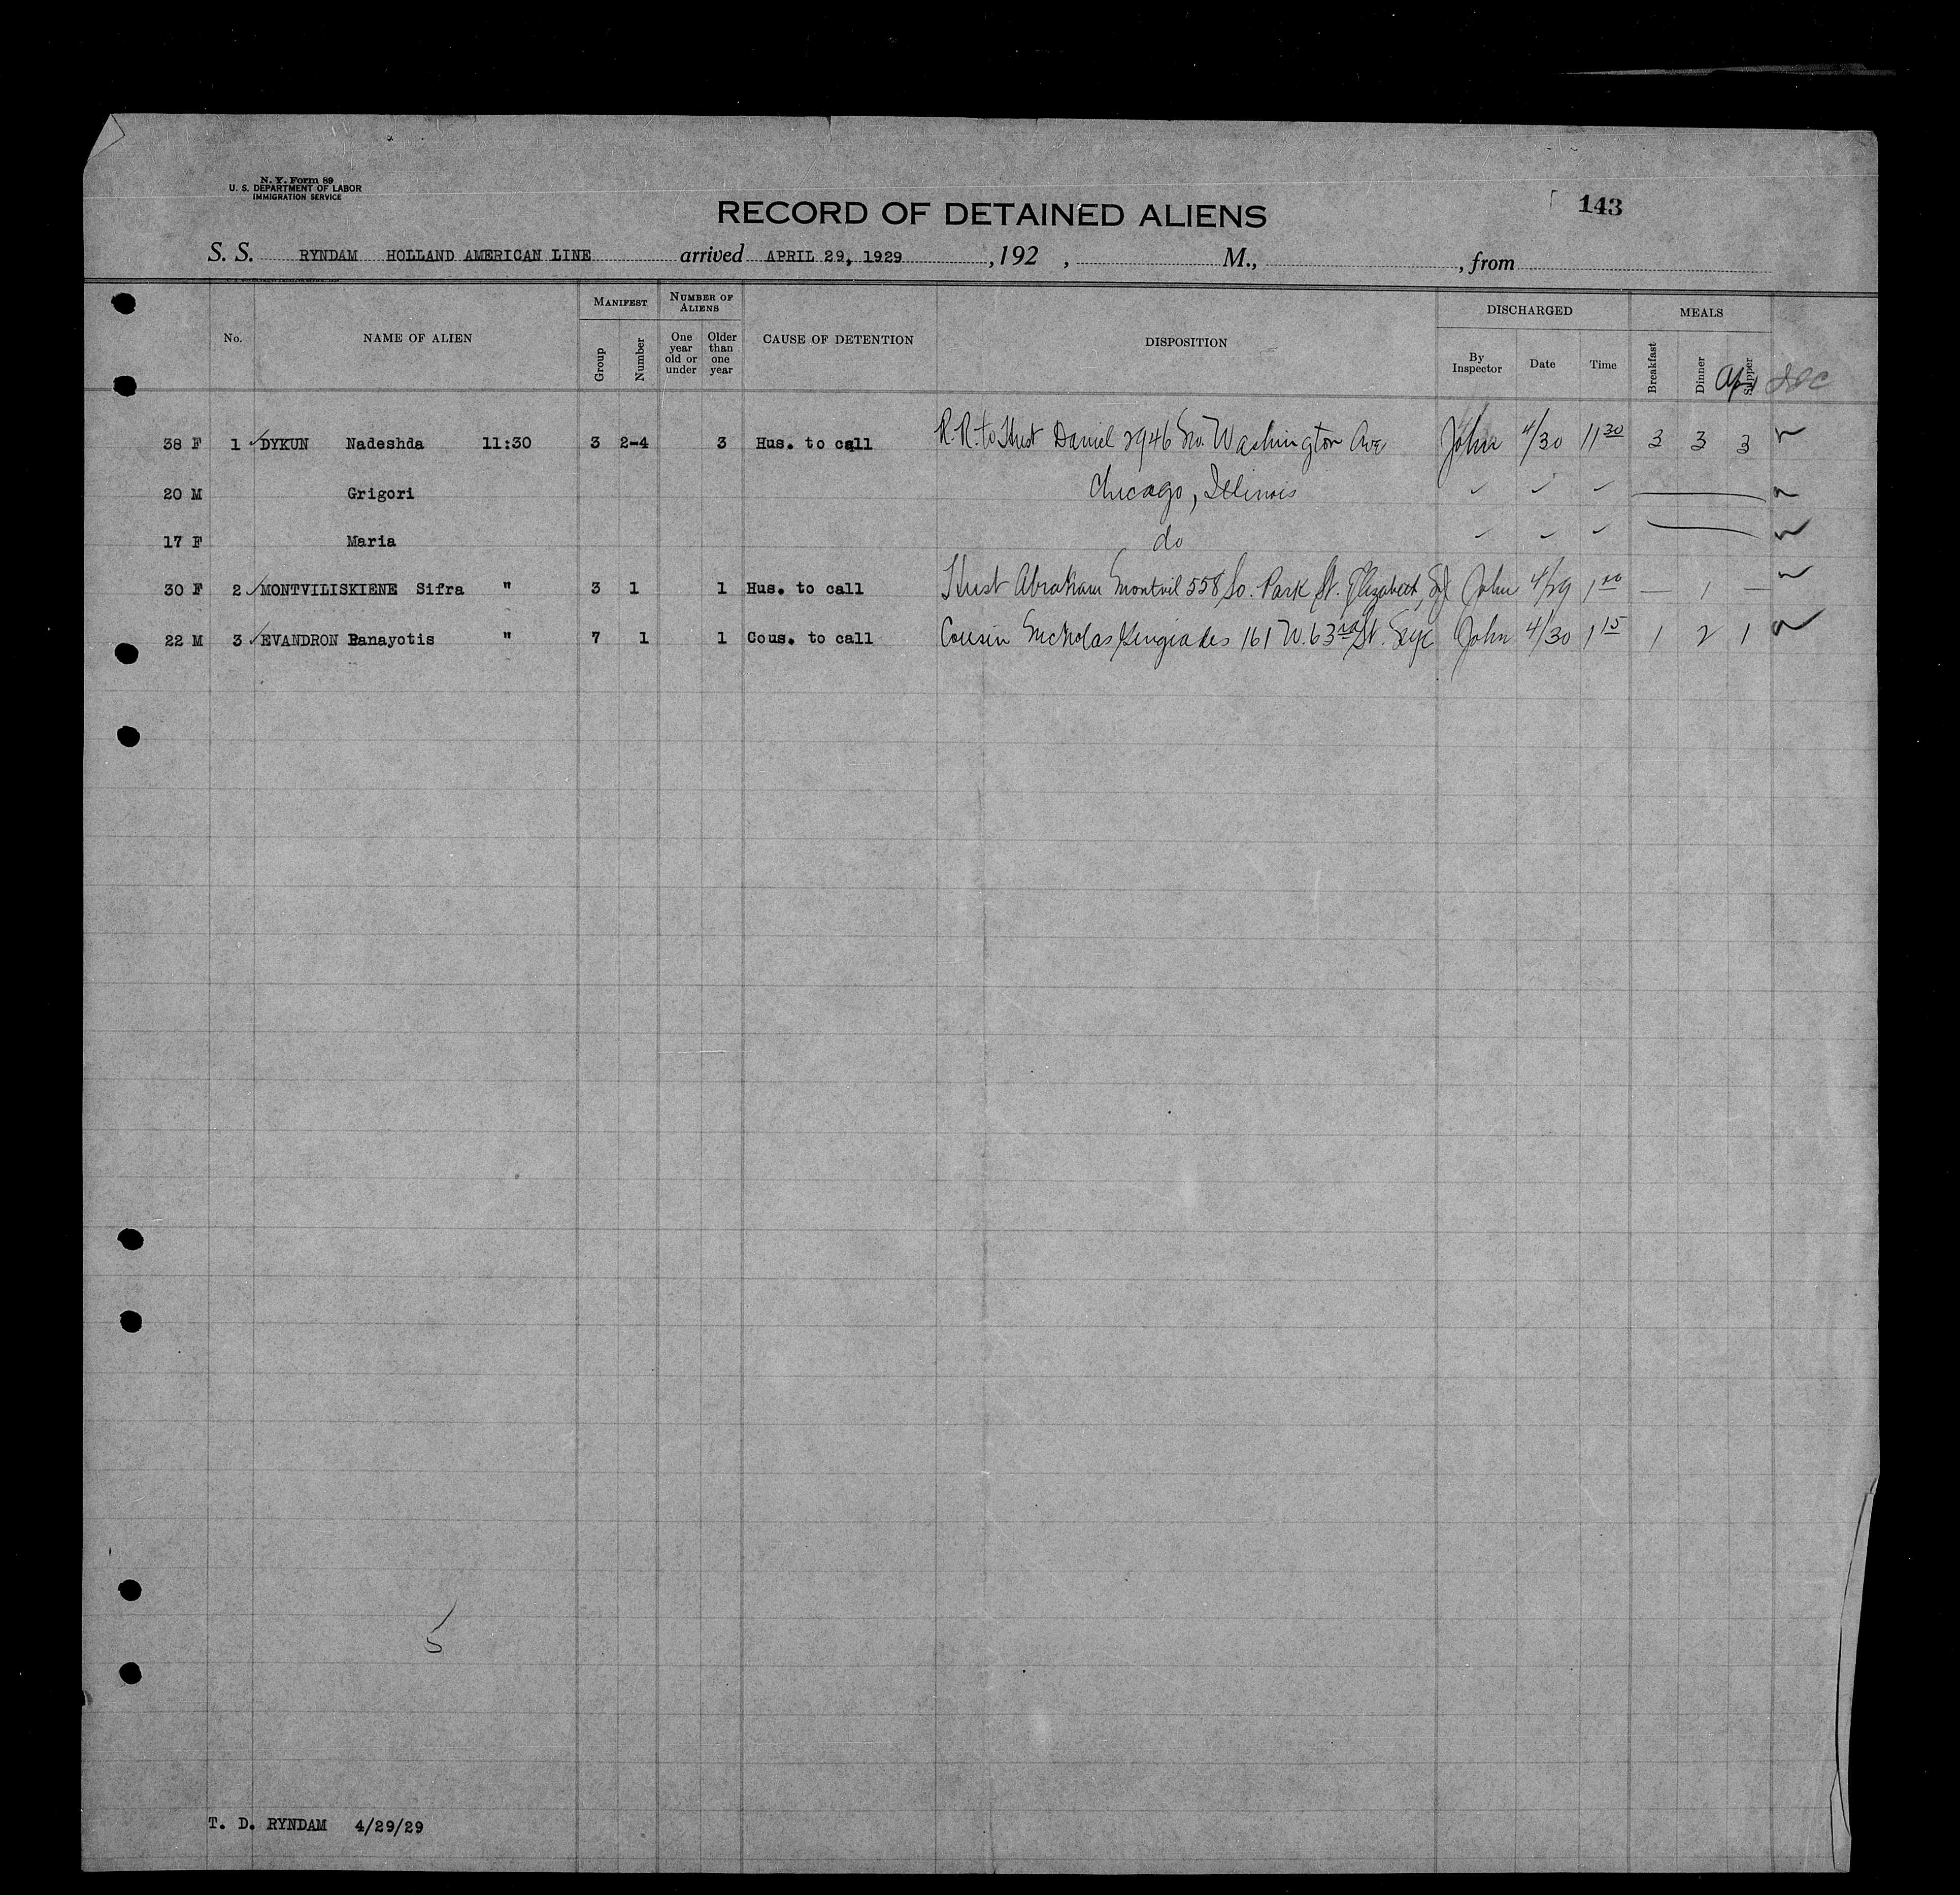 N. Y. Form 89
U. S. DEPARTMENT OF LABOR
IMMIGRATION SERVICE
RECORD OF DETAINED ALIENS
143
S. S. RYNDAM HOLLAND AMERICAN LINE arrived APRIL 29, 1929 , 192 , M., , from
No. NAME OF ALIEN MANIFEST Group Number NUMBER OF ALIENS One year old or under Older than one year CAUSE OF DETENTION DISPOSITION DISCHARGED By Inspector Date Time MEALS Breakfast Dinner Supper
38 F 1 DYKUN Nadeshda 11:30 3 2-4 3 Hus. to call R.R. to Hust Daniel 2946 No. Washington Ave John 4/30 11 30 3 3 3
20 M Grigori Chicago, Illinois
17 F Maria do
30 F 2 MONTVILISKIENE Sifra " 3 1 1 Hus. to call Hust Abraham Montvil 558 So. Park St. Elizabeth, NJ John 4/29 1 00 — 1 —
22 M 3 EVANDRON Panayotis " 7 1 1 Cous. to call Cousin Nicholas 161 W. 63rd St. NYC John 4/30 1 15 1 2 1
5
T. D. RYNDAM 4/29/29